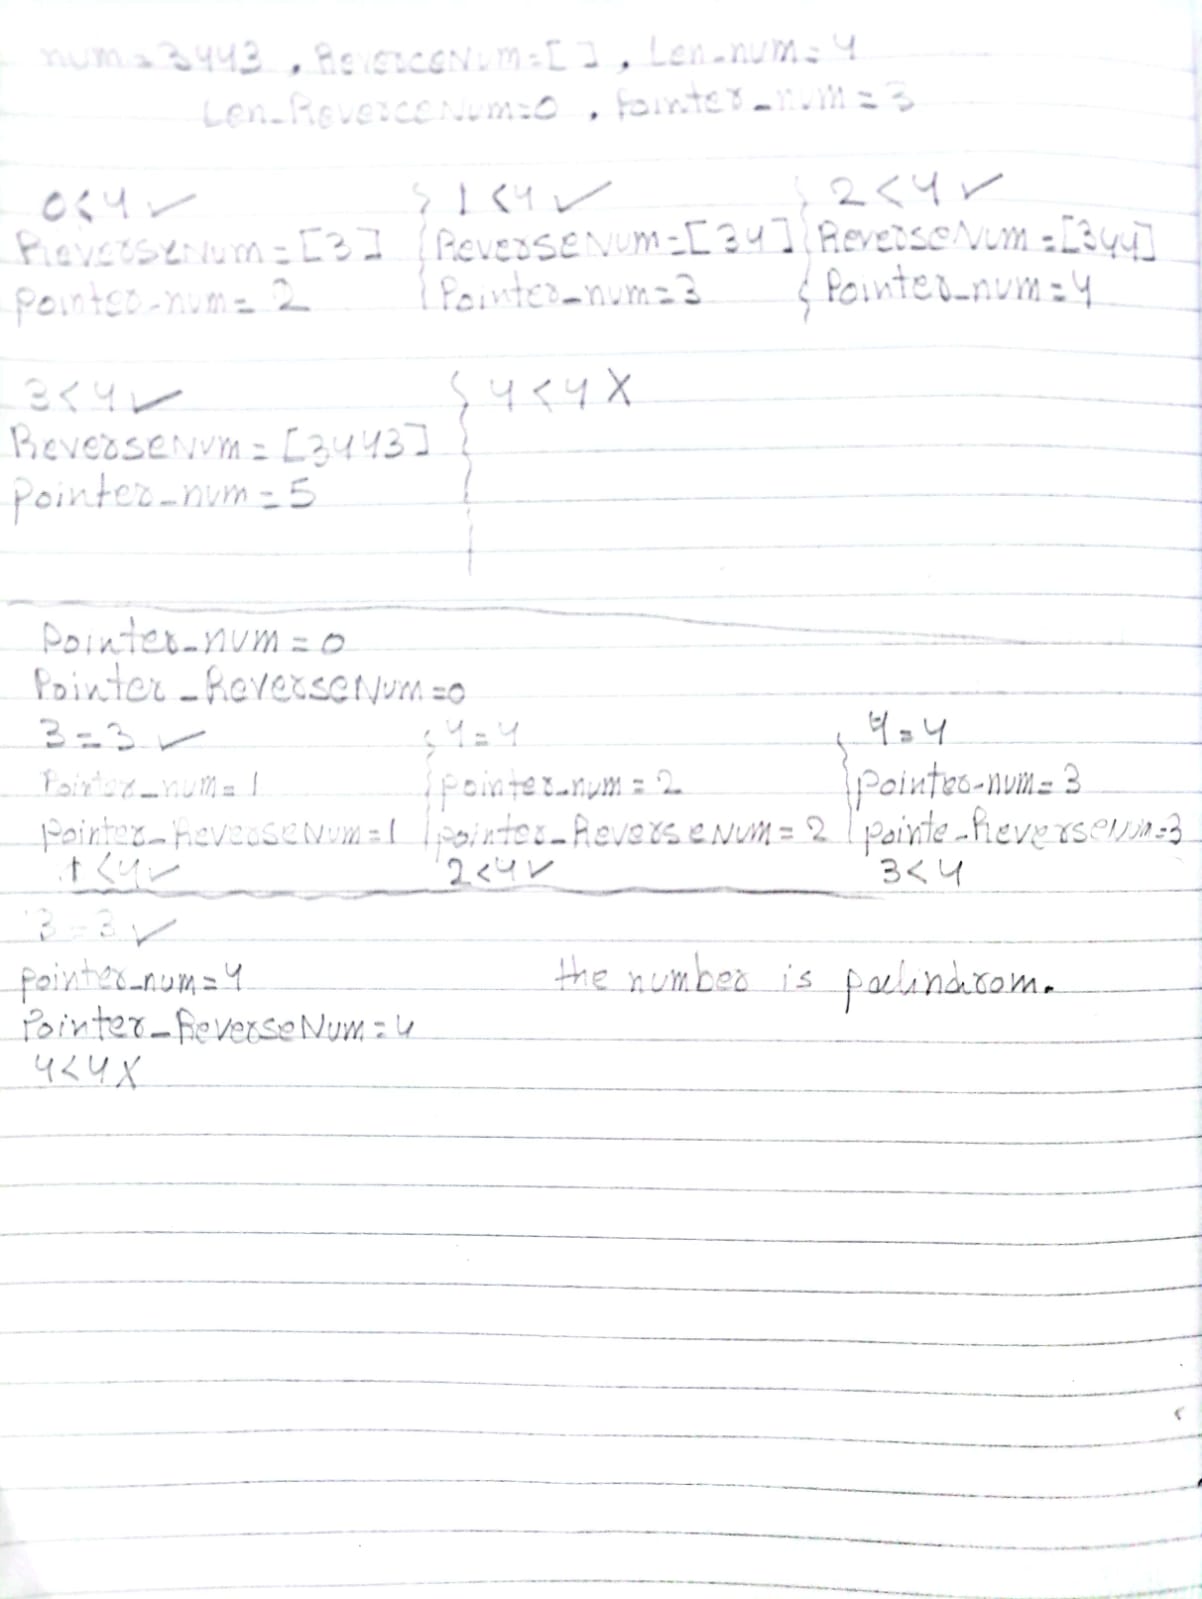 num = 3443 , ReverceNum=[ ] , Len_num=4
Len_ReverceNum=0 , Pointer_num = 3
0<4 ✓
ReverseNum = [3]
Pointer_num= 2
1 <4 ✓
ReverseNum=[34]
Pointer_num=3
2<4 ✓
ReverseNum =[344]
Pointer_num=4
3<4 ✓
ReverseNum = [3443]
Pointer_num = 5
4 <4 X
Pointer_num = 0
Pointer_ReverseNum=0
3=3 ✓
Pointer_num= 1
Pointer_ReverseNum=1
1<4 ✓
4=4
pointer_num = 2
pointer_ReverseNum= 2
2<4 ✓
4=4
pointer_num= 3
pointe_ReverseNum=3
3<4
3=3 ✓
pointer_num=4
Pointer_ReverseNum=4
4<4 X
the number is palindrom.